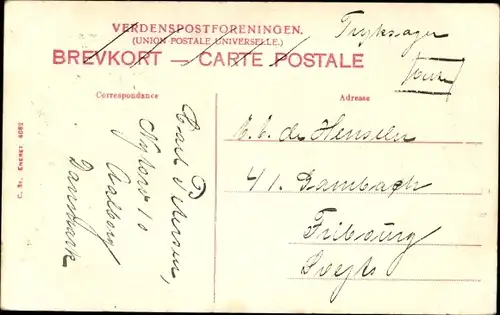 VERDENSPOSTFORENINGEN.
(UNION POSTALE UNIVERSELLE.)
BREVKORT — CARTE POSTALE
Tryksager
Correspondance
Adresse
Carl Petersen,
Nytorv 10
Aalborg
Danmark
de Henseler
41. Dambach
Fribourg
C. St. Eneret 4082